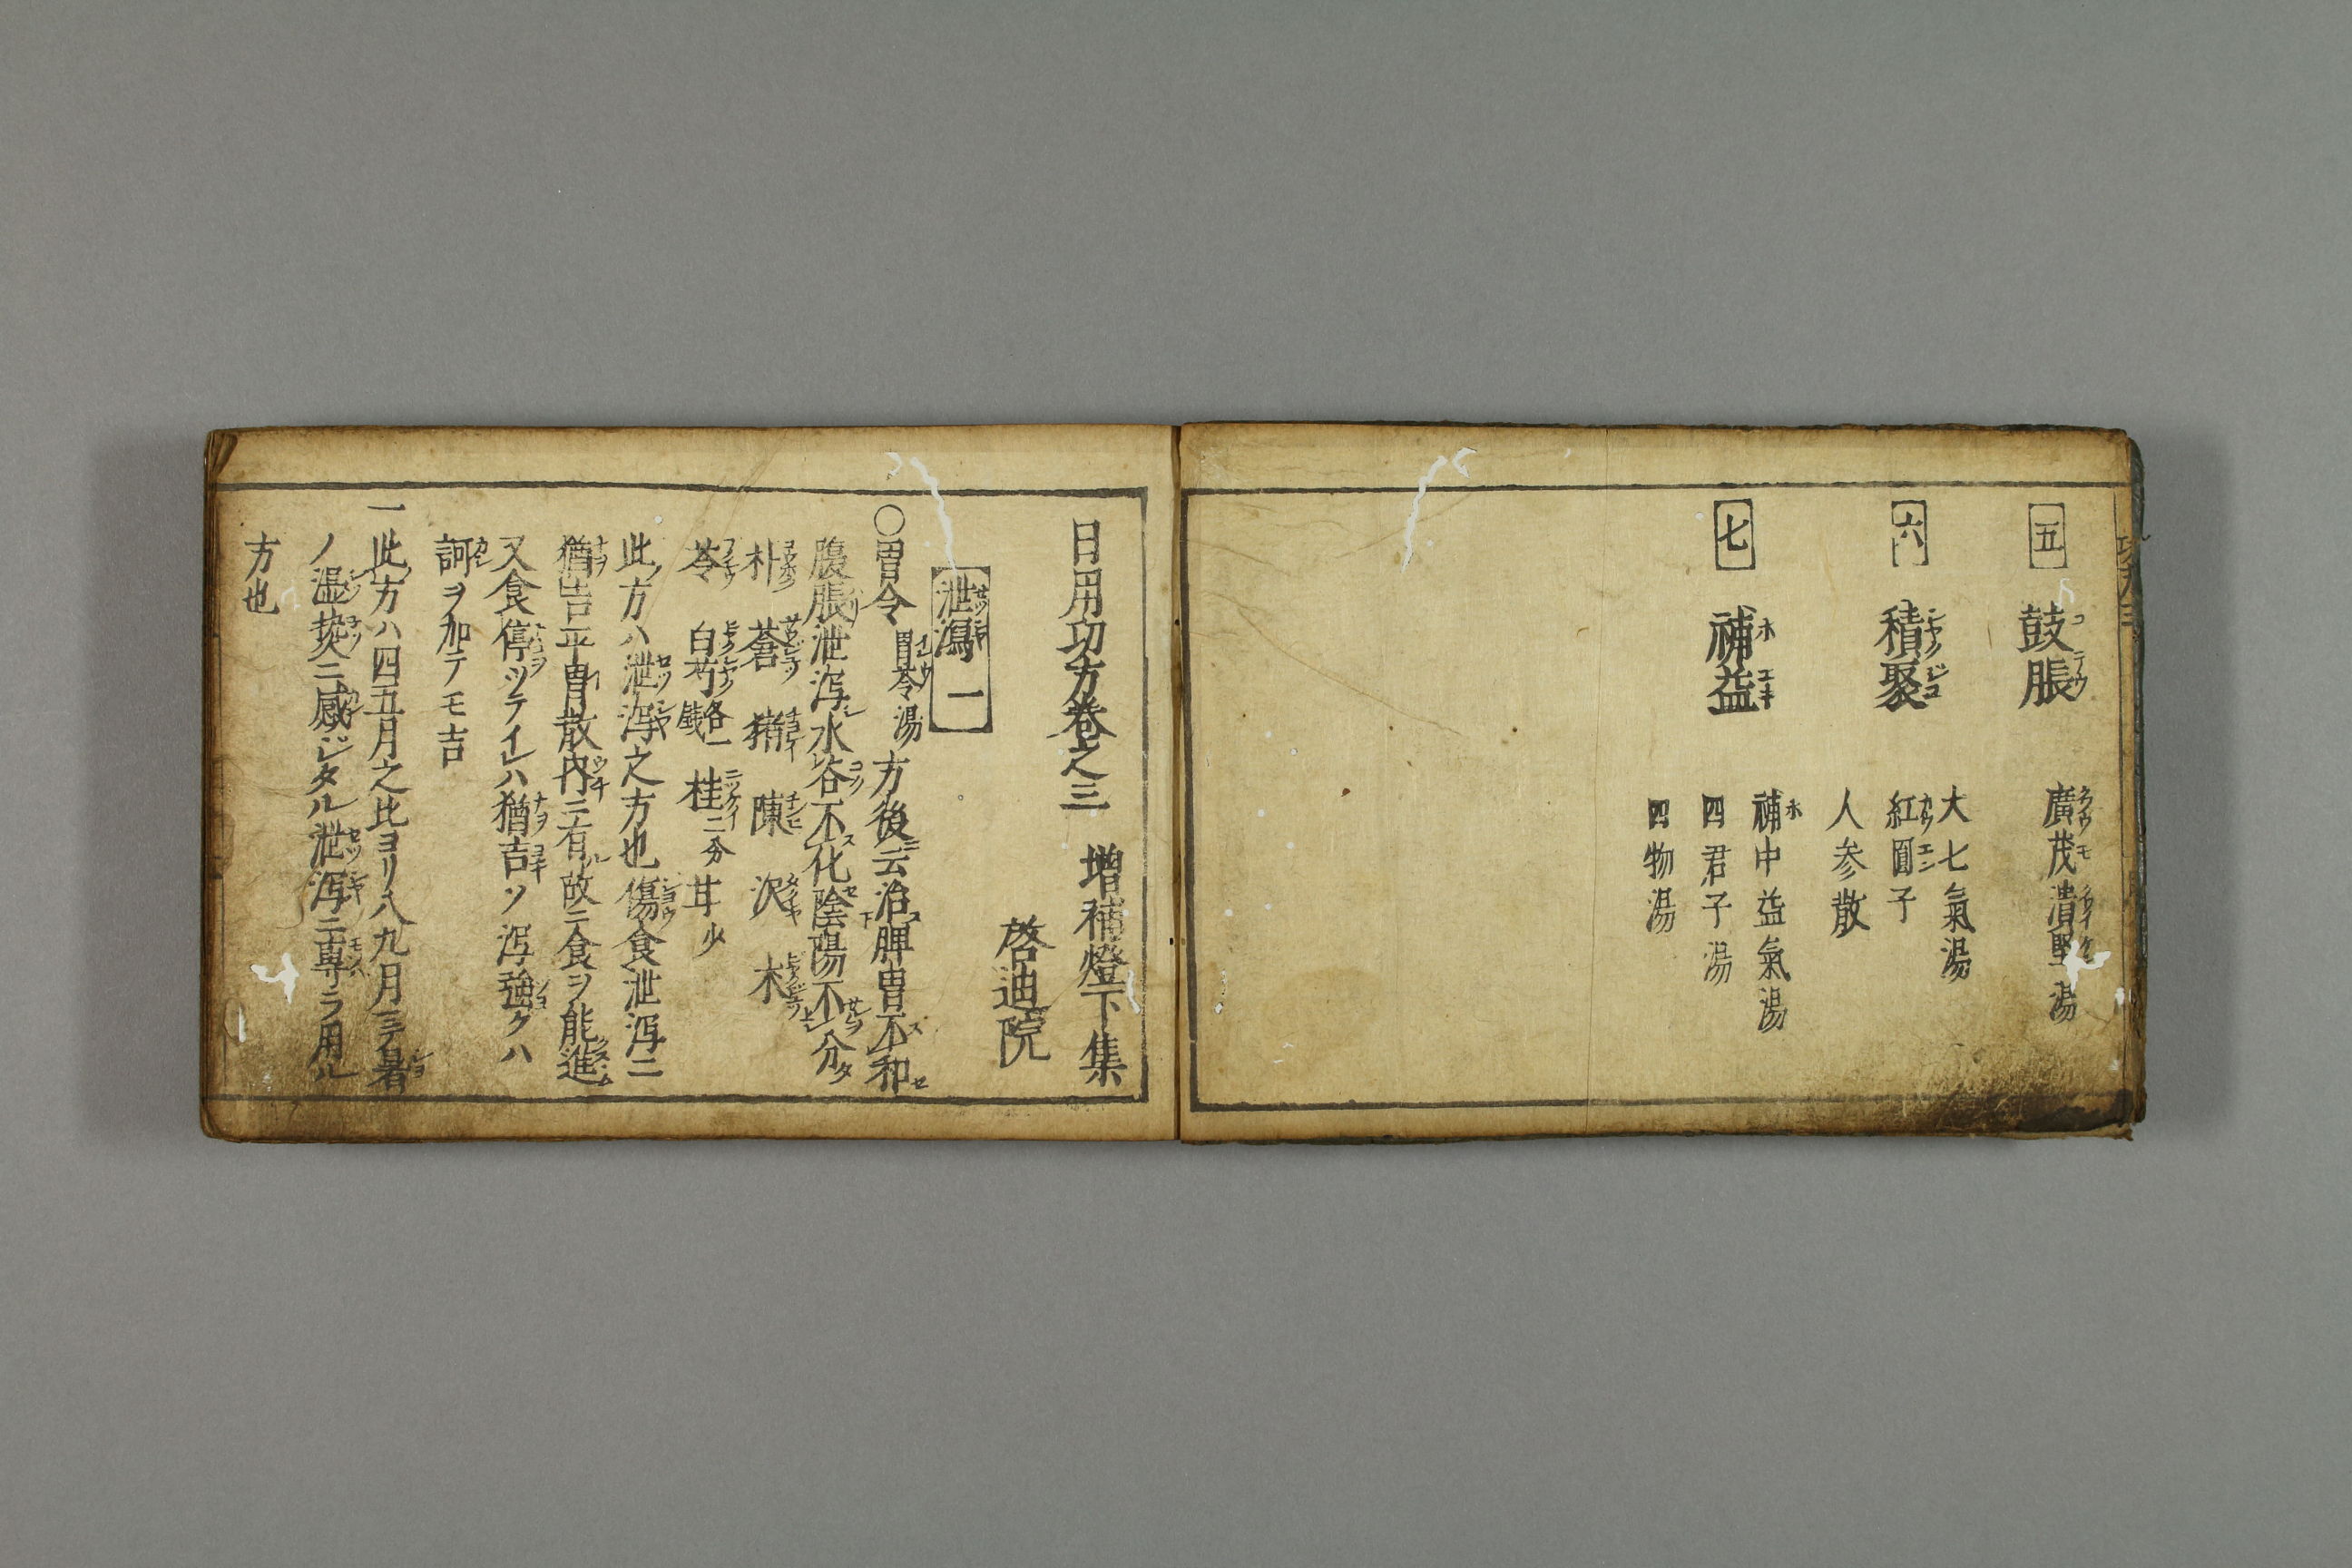 五 鼓脹 廣茂潰堅湯
六 積聚 大七氣湯
紅圓子
人参散
七 補益 補中益氣湯
四君子湯
四物湯
日用功方巻之三 増補燈下集
啓迪院
泄瀉 一
〇胃令 胃苓湯 方後云治脾胃不和
腹脹泄瀉水谷不化陰陽不分
朴 蒼 猪 陳 沢 木
苓 白芍 各一戔 桂二分 甘少
此方ハ泄瀉之方也傷食泄瀉ニ
猶吉平胃散内ニ有故ニ食ヲ能進
又食停ツテイレハ猶吉ソ瀉強クハ
訶ヲ加テモ吉
一此方ハ四五月之比ヨリ八九月ニテ暑
ノ湿ニ感ジタル泄瀉ニ専ラ用ル
方也